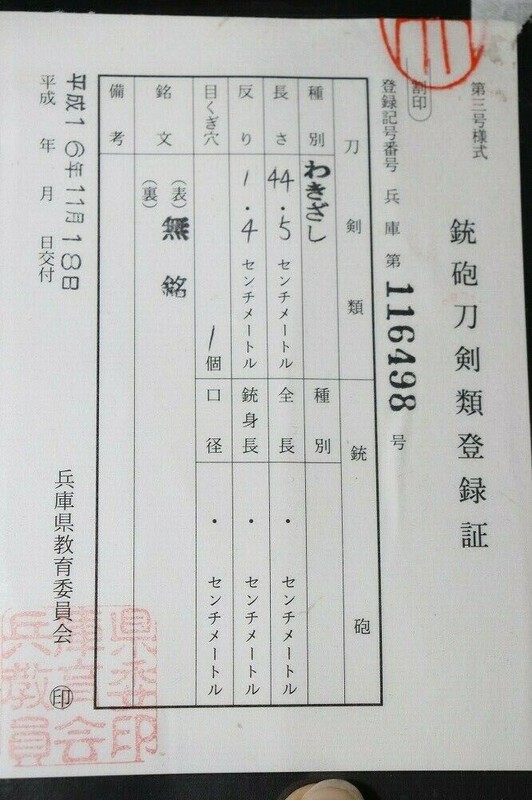 第三号様式
銃砲刀剣類登録証
割印
登録記号番号 兵庫 第 116498 号
刀剣類
銃砲
種別 わきざし
種別
長さ 44.5 センチメートル
全長 ・ センチメートル
反り 1.4 センチメートル
銃身長 ・ センチメートル
目くぎ穴 1個
口径 ・ センチメートル
銘文 (表) 無銘
(裏)
備考
平成16年11月18日
平成 年 月 日交付
兵庫県教育委員会 印
兵庫県
教育委
員会印